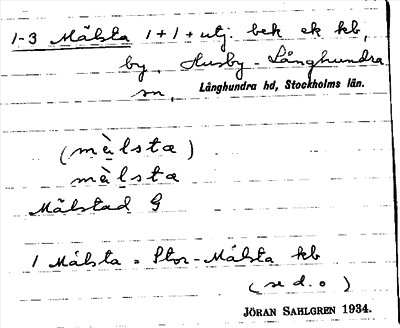 1-3 Mälsta 1+1+utj. bek ek kb,
by, Husby-Långhundra
sn,
Långhundra hd, Stockholms län.
(mä̀lsta)
mä̀lsta
Mälstad G
1 Mälsta = Stor-Mälsta kb
(se d. o)
JÖRAN SAHLGREN 1934.